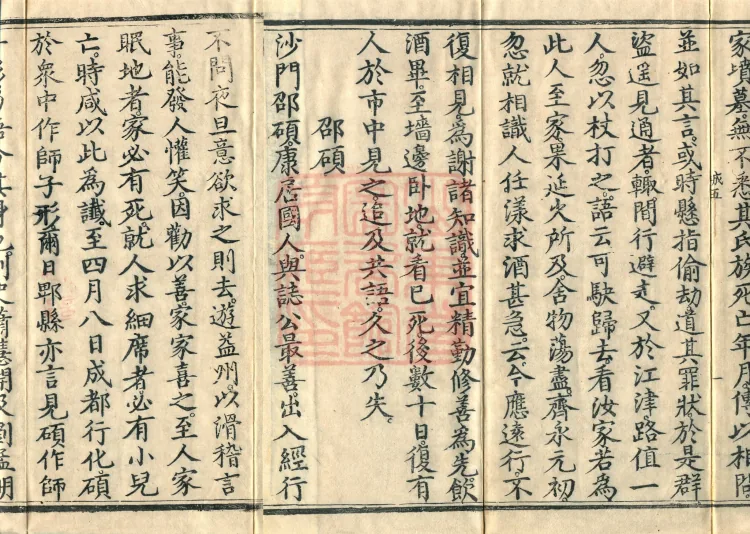 家墳墓無不悉其氏族死亡年月傳以相問
並如其言或時懸指偷劫道其罪狀於是群
盜遥見通者輙間行避走又於江津路值一
人忽以杖打之語云可駃歸去看汝家若為
此人至家果延火所及舍物蕩盡齊永元初
忽就相識人任漾求酒甚急云今應遠行不
復相見為謝諸知識並宜精勤修善為先飲
酒畢至墻邊卧地就看已死後數十日復有
人於市中見之追及共語久之乃失
邵碩
沙門邵碩康居國人與誌公最善出入經行
不問夜旦意欲求之則去遊益州以滑稽言
事能發人懽笑因勸以善家家喜之至人家
眠地者家必有死就人求細席者必有小兒
亡時咸以此為讖至四月八日成都行化碩
於衆中作師子形爾日郫縣亦言見碩作師